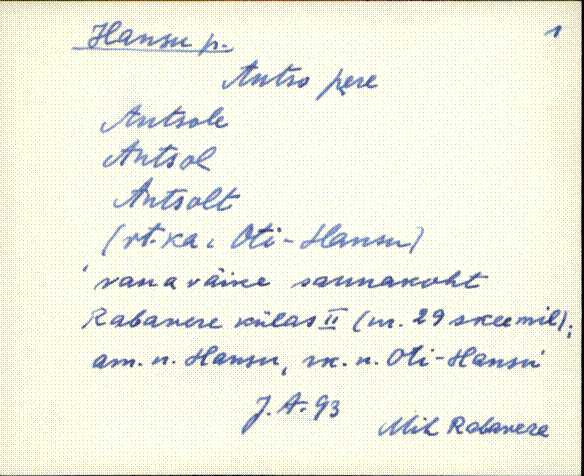 Hansu p. 1
Antso pere
Antsole
Antsol
Antsolt
(vt. ka: Oti-Hansu)
'vana väike saunakoht
Rabavere külas II (nr. 29 skeemil);
am. n. Hansu, rk. n. Oti-Hansu'
J. A. 93
Mih Rabavere